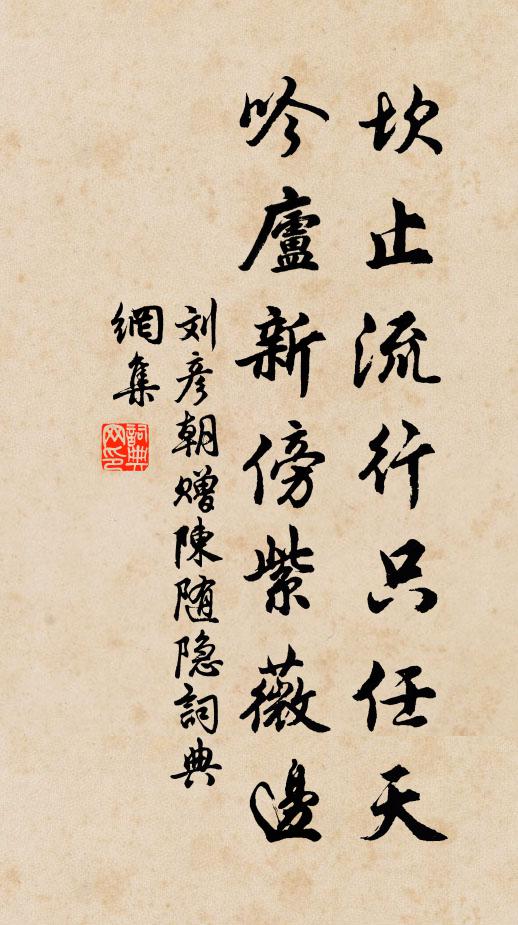 坎止流行只任天
吟廬新傍紫薇邊
刘彦朝赠陳随隐詞典
網集
詞典網印